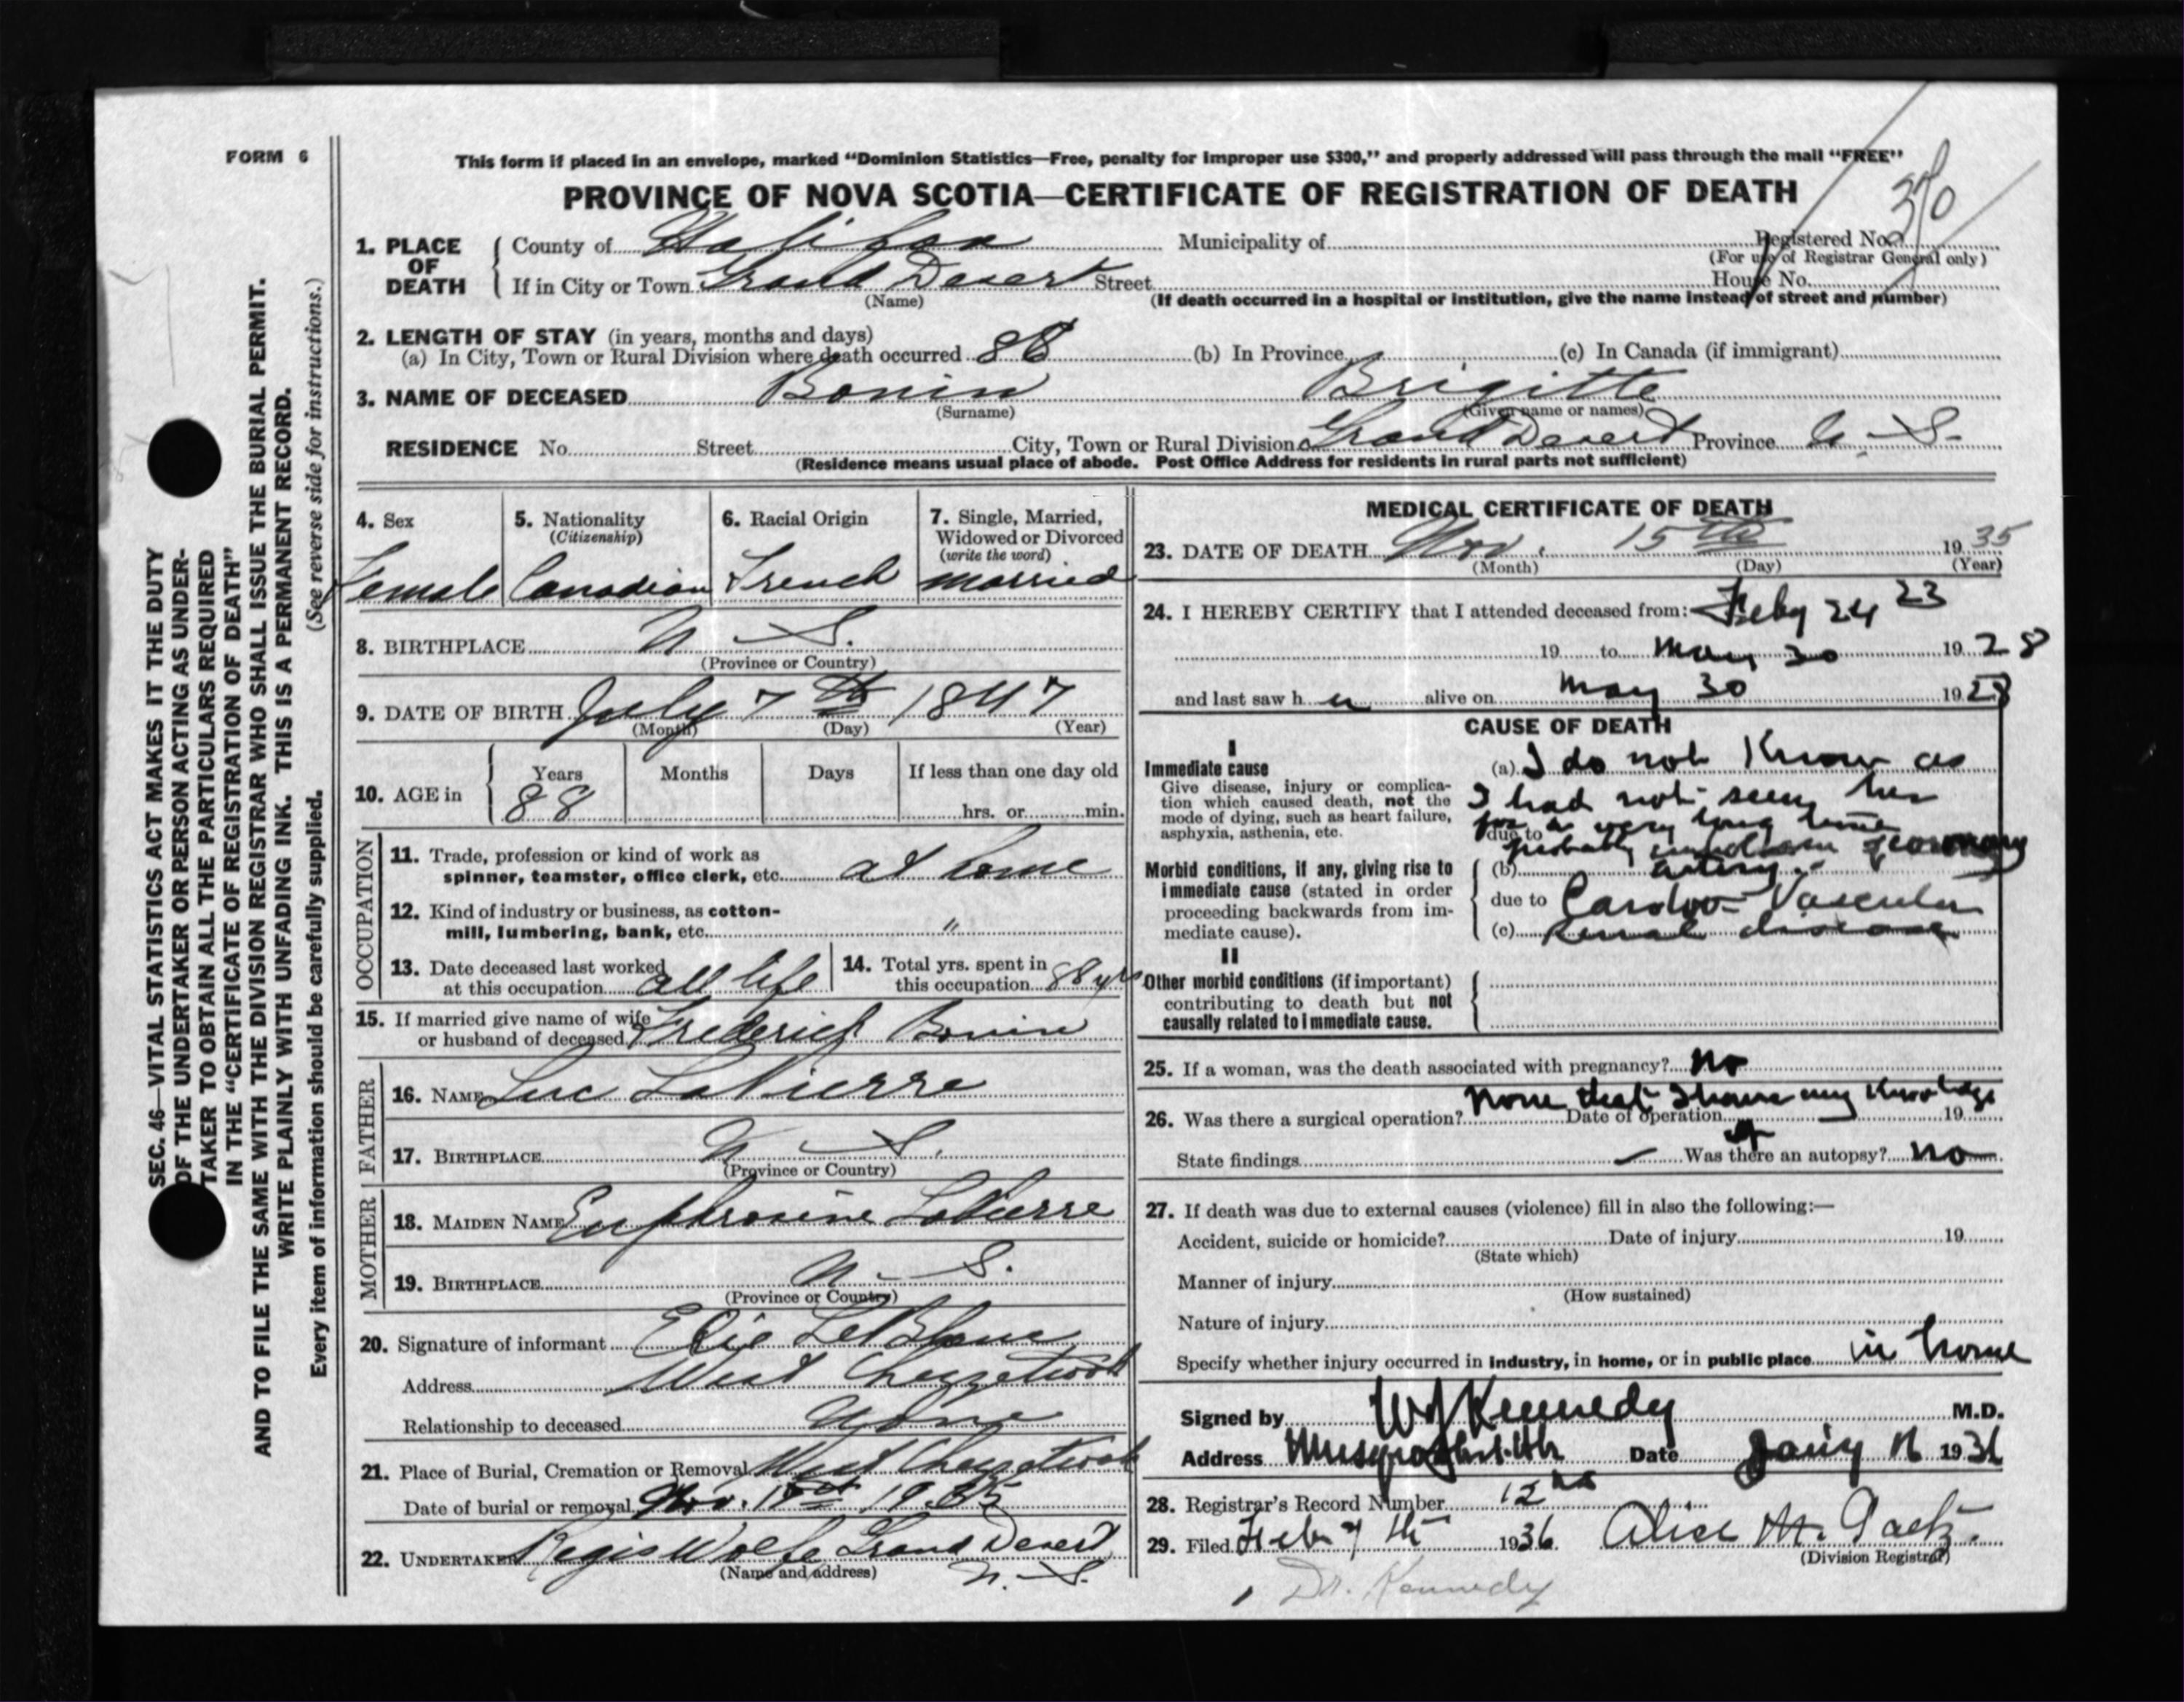 FORM 6
This form if placed in an envelope, marked "Dominion Statistics—Free, penalty for improper use $300," and properly addressed will pass through the mail "FREE"
PROVINCE OF NOVA SCOTIA—CERTIFICATE OF REGISTRATION OF DEATH
1. PLACE OF DEATH County of Halifax Municipality of Registered No.
(For use of Registrar General only)
If in City or Town Grand Desert Street House No.
(Name) (If death occurred in a hospital or institution, give the name instead of street and number)
2. LENGTH OF STAY (in years, months and days)
(a) In City, Town or Rural Division where death occurred 88 (b) In Province (c) In Canada (if immigrant)
3. NAME OF DECEASED Bonin Brigitte
(Surname) (Given name or names)
RESIDENCE No. Street City, Town or Rural Division Grand Desert Province N-S.
(Residence means usual place of abode. Post Office Address for residents in rural parts not sufficient)
SEC. 46—VITAL STATISTICS ACT MAKES IT THE DUTY
OF THE UNDERTAKER OR PERSON ACTING AS UNDER-
TAKER TO OBTAIN ALL THE PARTICULARS REQUIRED
IN THE "CERTIFICATE OF REGISTRATION OF DEATH"
AND TO FILE THE SAME WITH THE DIVISION REGISTRAR WHO SHALL ISSUE THE BURIAL PERMIT.
WRITE PLAINLY WITH UNFADING INK. THIS IS A PERMANENT RECORD.
Every item of information should be carefully supplied. (See reverse side for instructions.)
4. Sex 5. Nationality 6. Racial Origin 7. Single, Married,
(Citizenship) Widowed or Divorced
(write the word)
Female Canadian French married
8. BIRTHPLACE N S.
(Province or Country)
9. DATE OF BIRTH July 7th 1847
(Month) (Day) (Year)
10. AGE in Years Months Days If less than one day old
88 hrs. or min.
OCCUPATION
11. Trade, profession or kind of work as
spinner, teamster, office clerk, etc. at home
12. Kind of industry or business, as cotton-
mill, lumbering, bank, etc. "
13. Date deceased last worked
at this occupation all life
14. Total yrs. spent in
this occupation 88 yrs
15. If married give name of wife
or husband of deceased Frederick Bonin
FATHER
16. NAME Luc LaPierre
17. BIRTHPLACE N S.
(Province or Country)
MOTHER
18. MAIDEN NAME Euphrosine LaPierre
19. BIRTHPLACE N-S.
(Province or Country)
20. Signature of informant Elie LeBlanc
Address West Chezzetcook
Relationship to deceased None
21. Place of Burial, Cremation or Removal West Chezzetcook
Date of burial or removal Nov. 1935
22. UNDERTAKER Regis Wolfe Grand Desert
(Name and address) N.-S.
MEDICAL CERTIFICATE OF DEATH
23. DATE OF DEATH Nov. 15th 1935
(Month) (Day) (Year)
24. I HEREBY CERTIFY that I attended deceased from: Feby 24 23
19 to May 30 1928
and last saw h er alive on May 30 1928
CAUSE OF DEATH
I
Immediate cause
Give disease, injury or complica-
tion which caused death, not the
mode of dying, such as heart failure,
asphyxia, asthenia, etc.
(a) I do not know as
I had not seen her
for a very long time
due to
probably embolism of coronary
Morbid conditions, if any, giving rise to
immediate cause (stated in order
proceeding backwards from im-
mediate cause).
(b) artery.
due to Cardio-Vascular
(c) Renal disease
II
Other morbid conditions (if important)
contributing to death but not
causally related to immediate cause.
25. If a woman, was the death associated with pregnancy? No
None that I have any knowledge
26. Was there a surgical operation? Date of operation 19
of
State findings — Was there an autopsy? No
27. If death was due to external causes (violence) fill in also the following:—
Accident, suicide or homicide? Date of injury 19
(State which)
Manner of injury
(How sustained)
Nature of injury
Specify whether injury occurred in industry, in home, or in public place in home
Signed by WJ Kennedy M.D.
Address Date Jany 16 1936
28. Registrar's Record Number 12
29. Filed Feb 7th 1936 Alice M.
(Division Registrar)
Dr. Kennedy